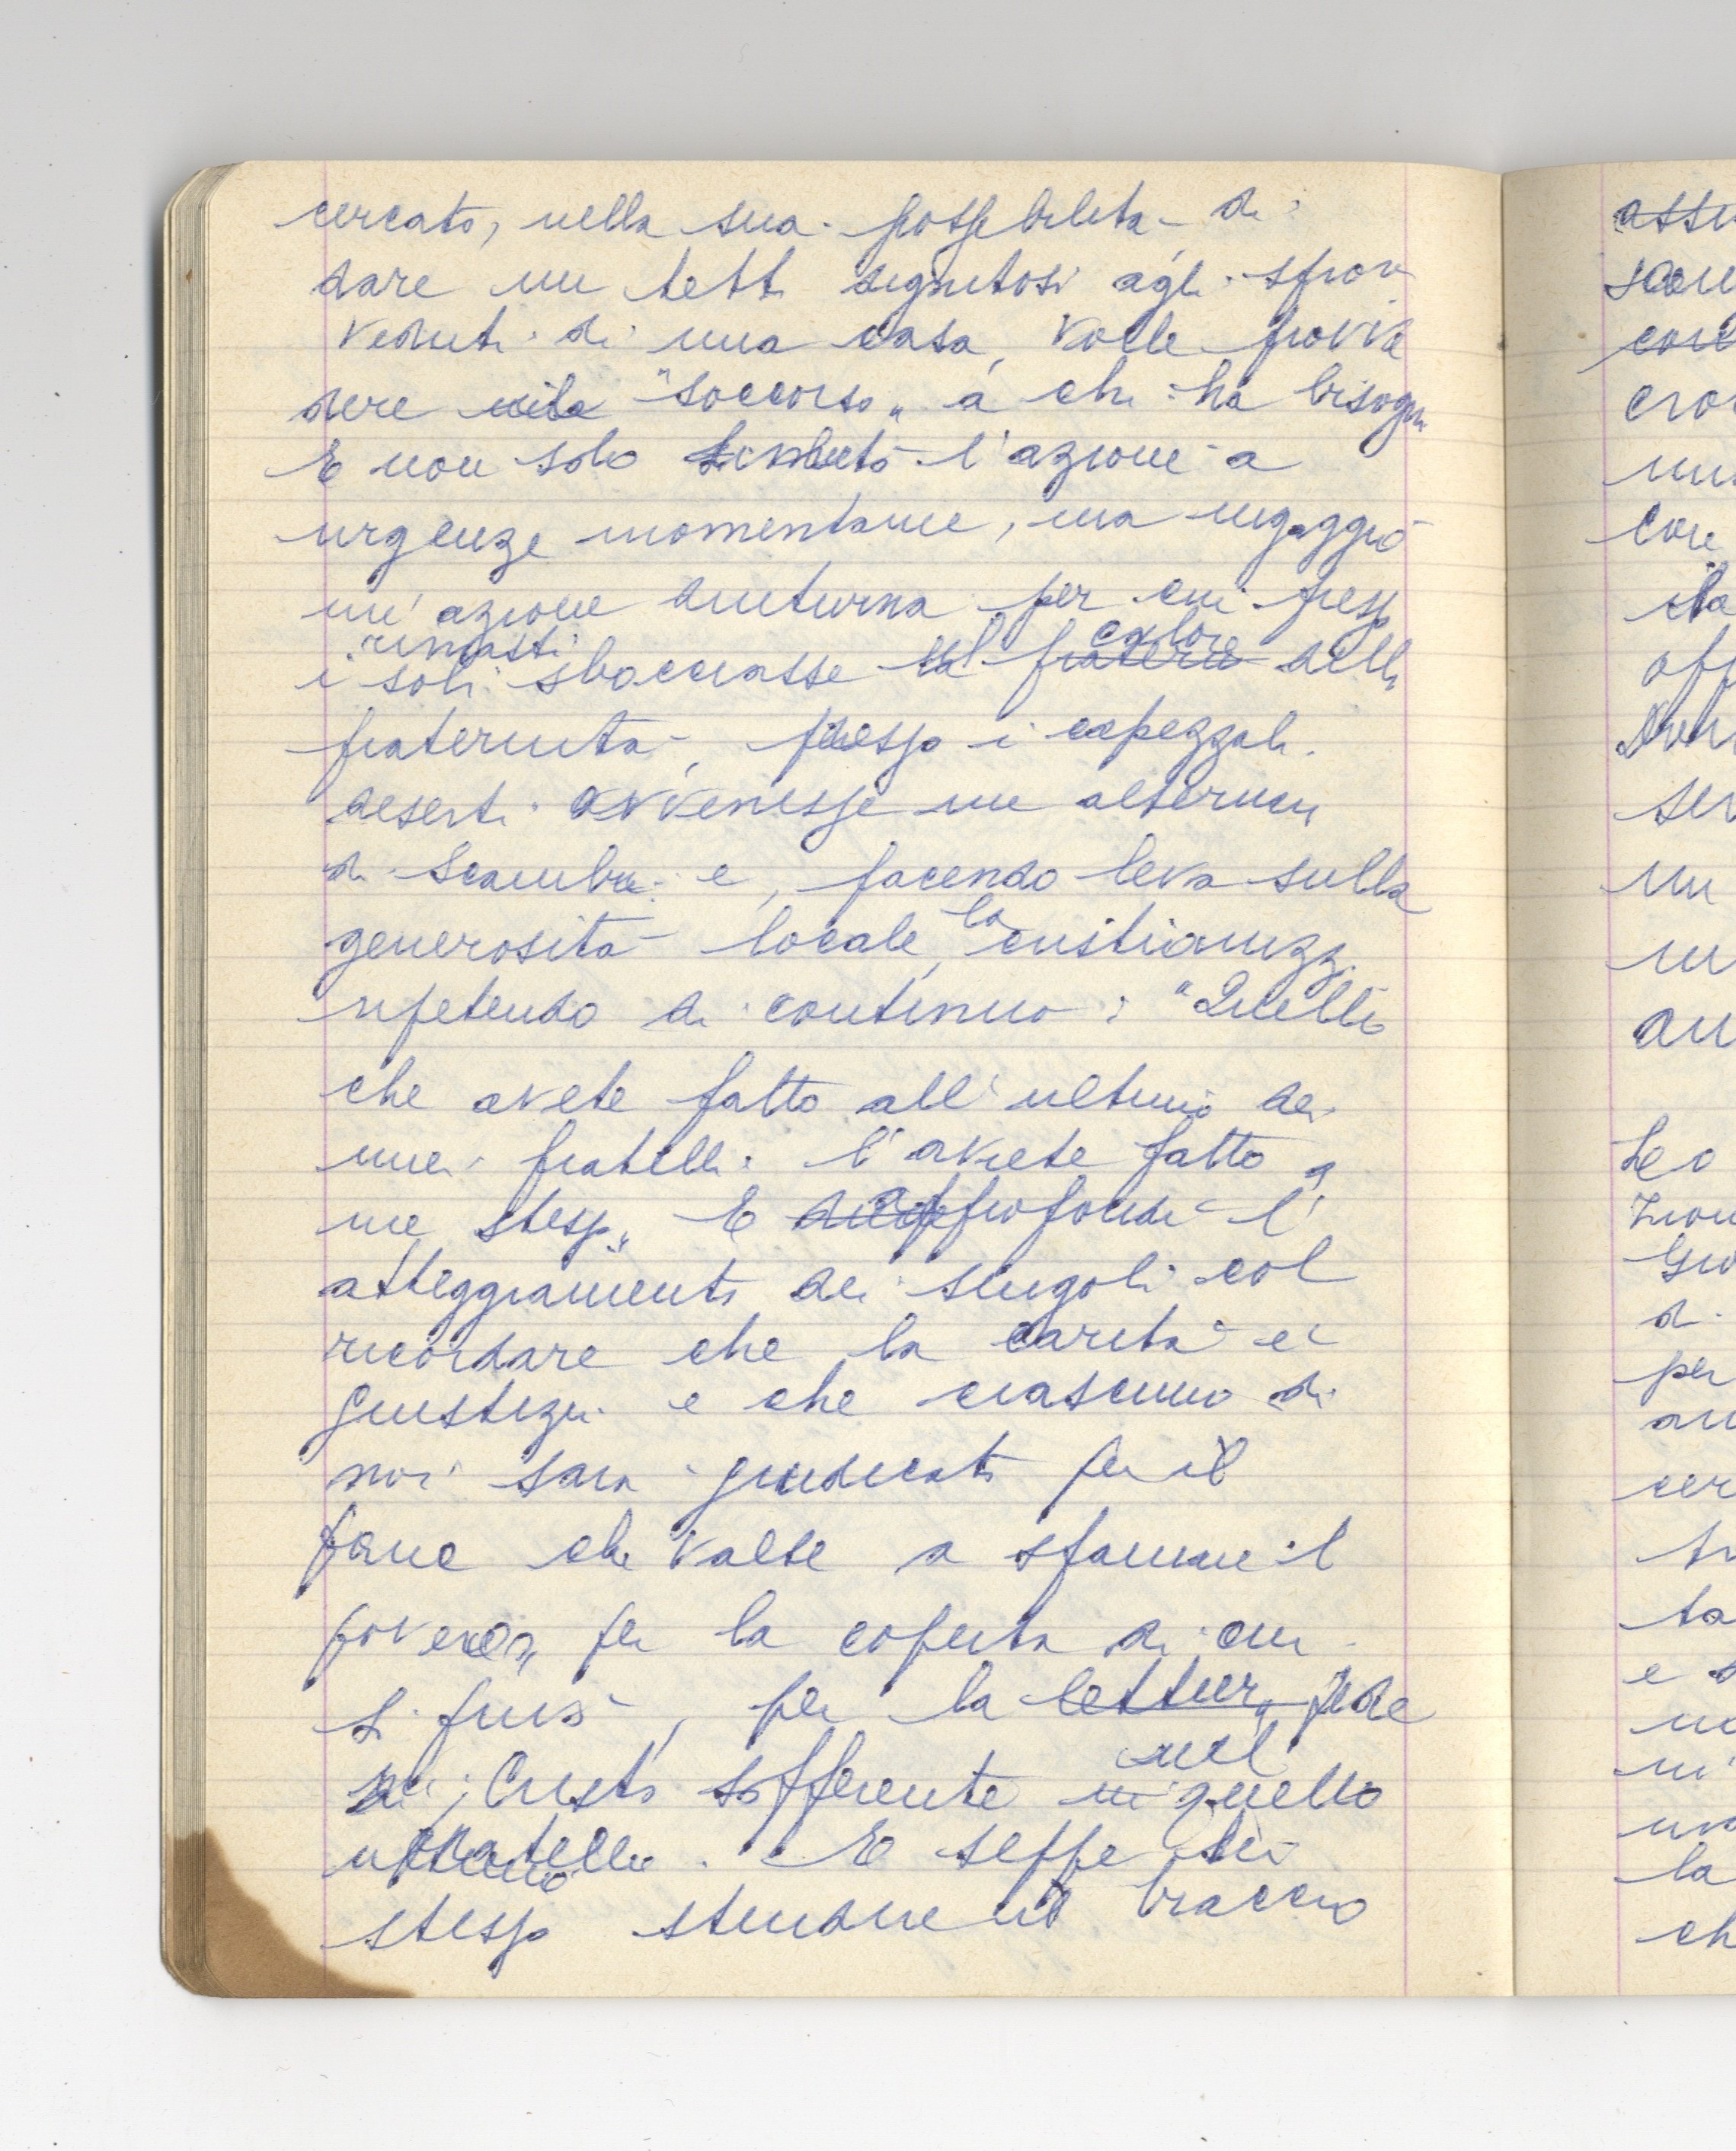 cercato, nella sua possibilità di
dare un tetto dignitoso agli sprov
veduti di una casa, volle provve
dere "soccorso" a chi ha bisogno
E non solo limitò l'azione a
urgenze momentanee, ma ingaggiò
un'azione diuturna per cui presso
i soli rimasti sbocciasse il calore della
fraternità, presso i capezzali
deserti avvenisse un alternarsi
di scambi e, facendo leva sulla
generosità locale, la cristianizzò
ripetendo di continuo: "Quello
che avete fatto all'ultimo dei
miei fratelli l'avete fatto a
me stesso" E approfondì l'
atteggiamento dei singoli col
ricordare che la carità è
giustizia e che ciascuno di
noi sarà giudicato per il
pane che valse a sfamare il
povero, per la coperta di cui
si privò, per la fede
in Cristo sofferente nel quello
fratello. E seppe lui
stesso stendere il braccio
assu
com
cro
un
con
ita
off
ser
un
un
au
Leo
Gio
di
per
an
cer
ta
e s
la
ch